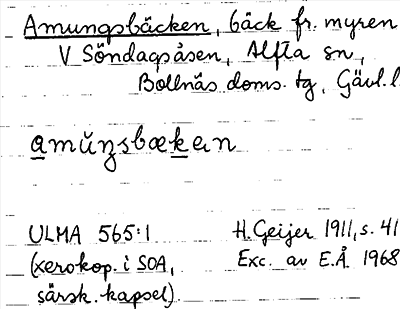 Amungsbäcken, bäck fr. myren
V Söndagsåsen, Alfta sn,
Bollnäs doms. tg, Gävl. l.
amŭŋsbæken
ULMA 565:1
(xerokop. i SOA,
särsk. kapsel)
H. Geijer 1911, s. 41
Exc. av E.Å. 1968